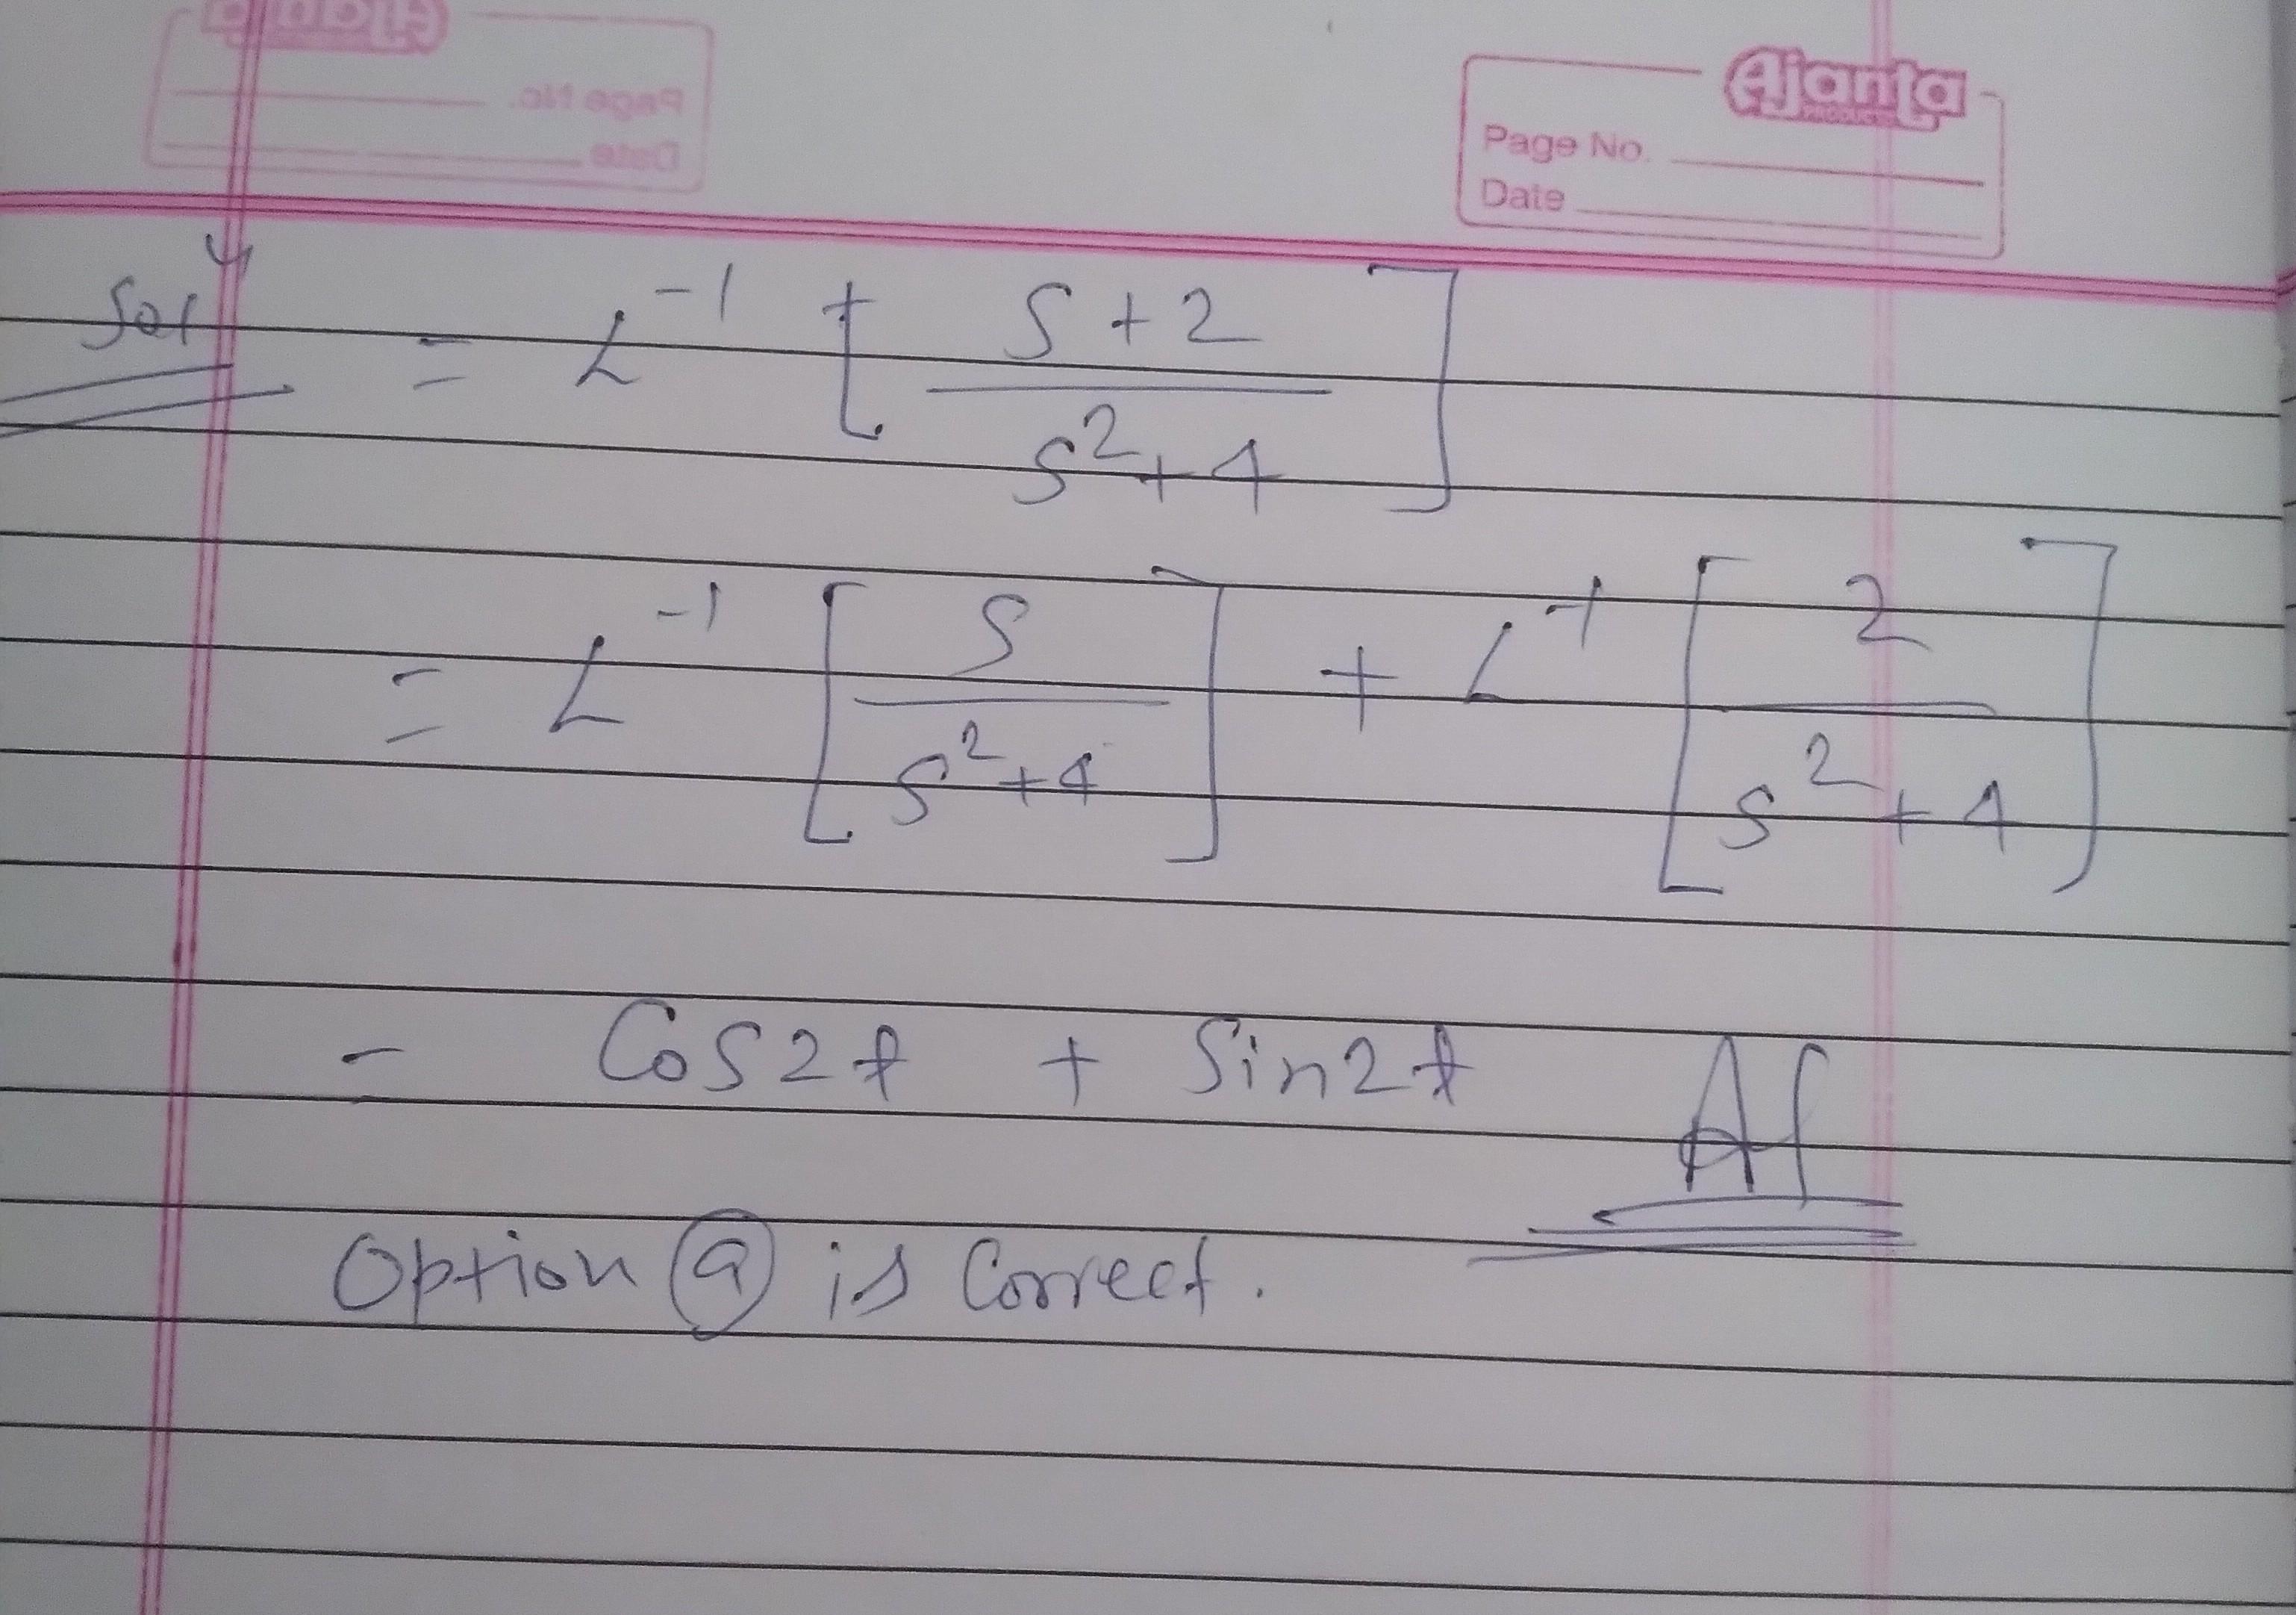 Ajanta
Page No.
Date
Soln = L⁻¹ [ S+2 / S²+4 ]
= L⁻¹ [ S / S²+4 ] + L⁻¹ [ 2 / S²+4 ]
- Cos2t + Sin2t
Option (a) is Correct.